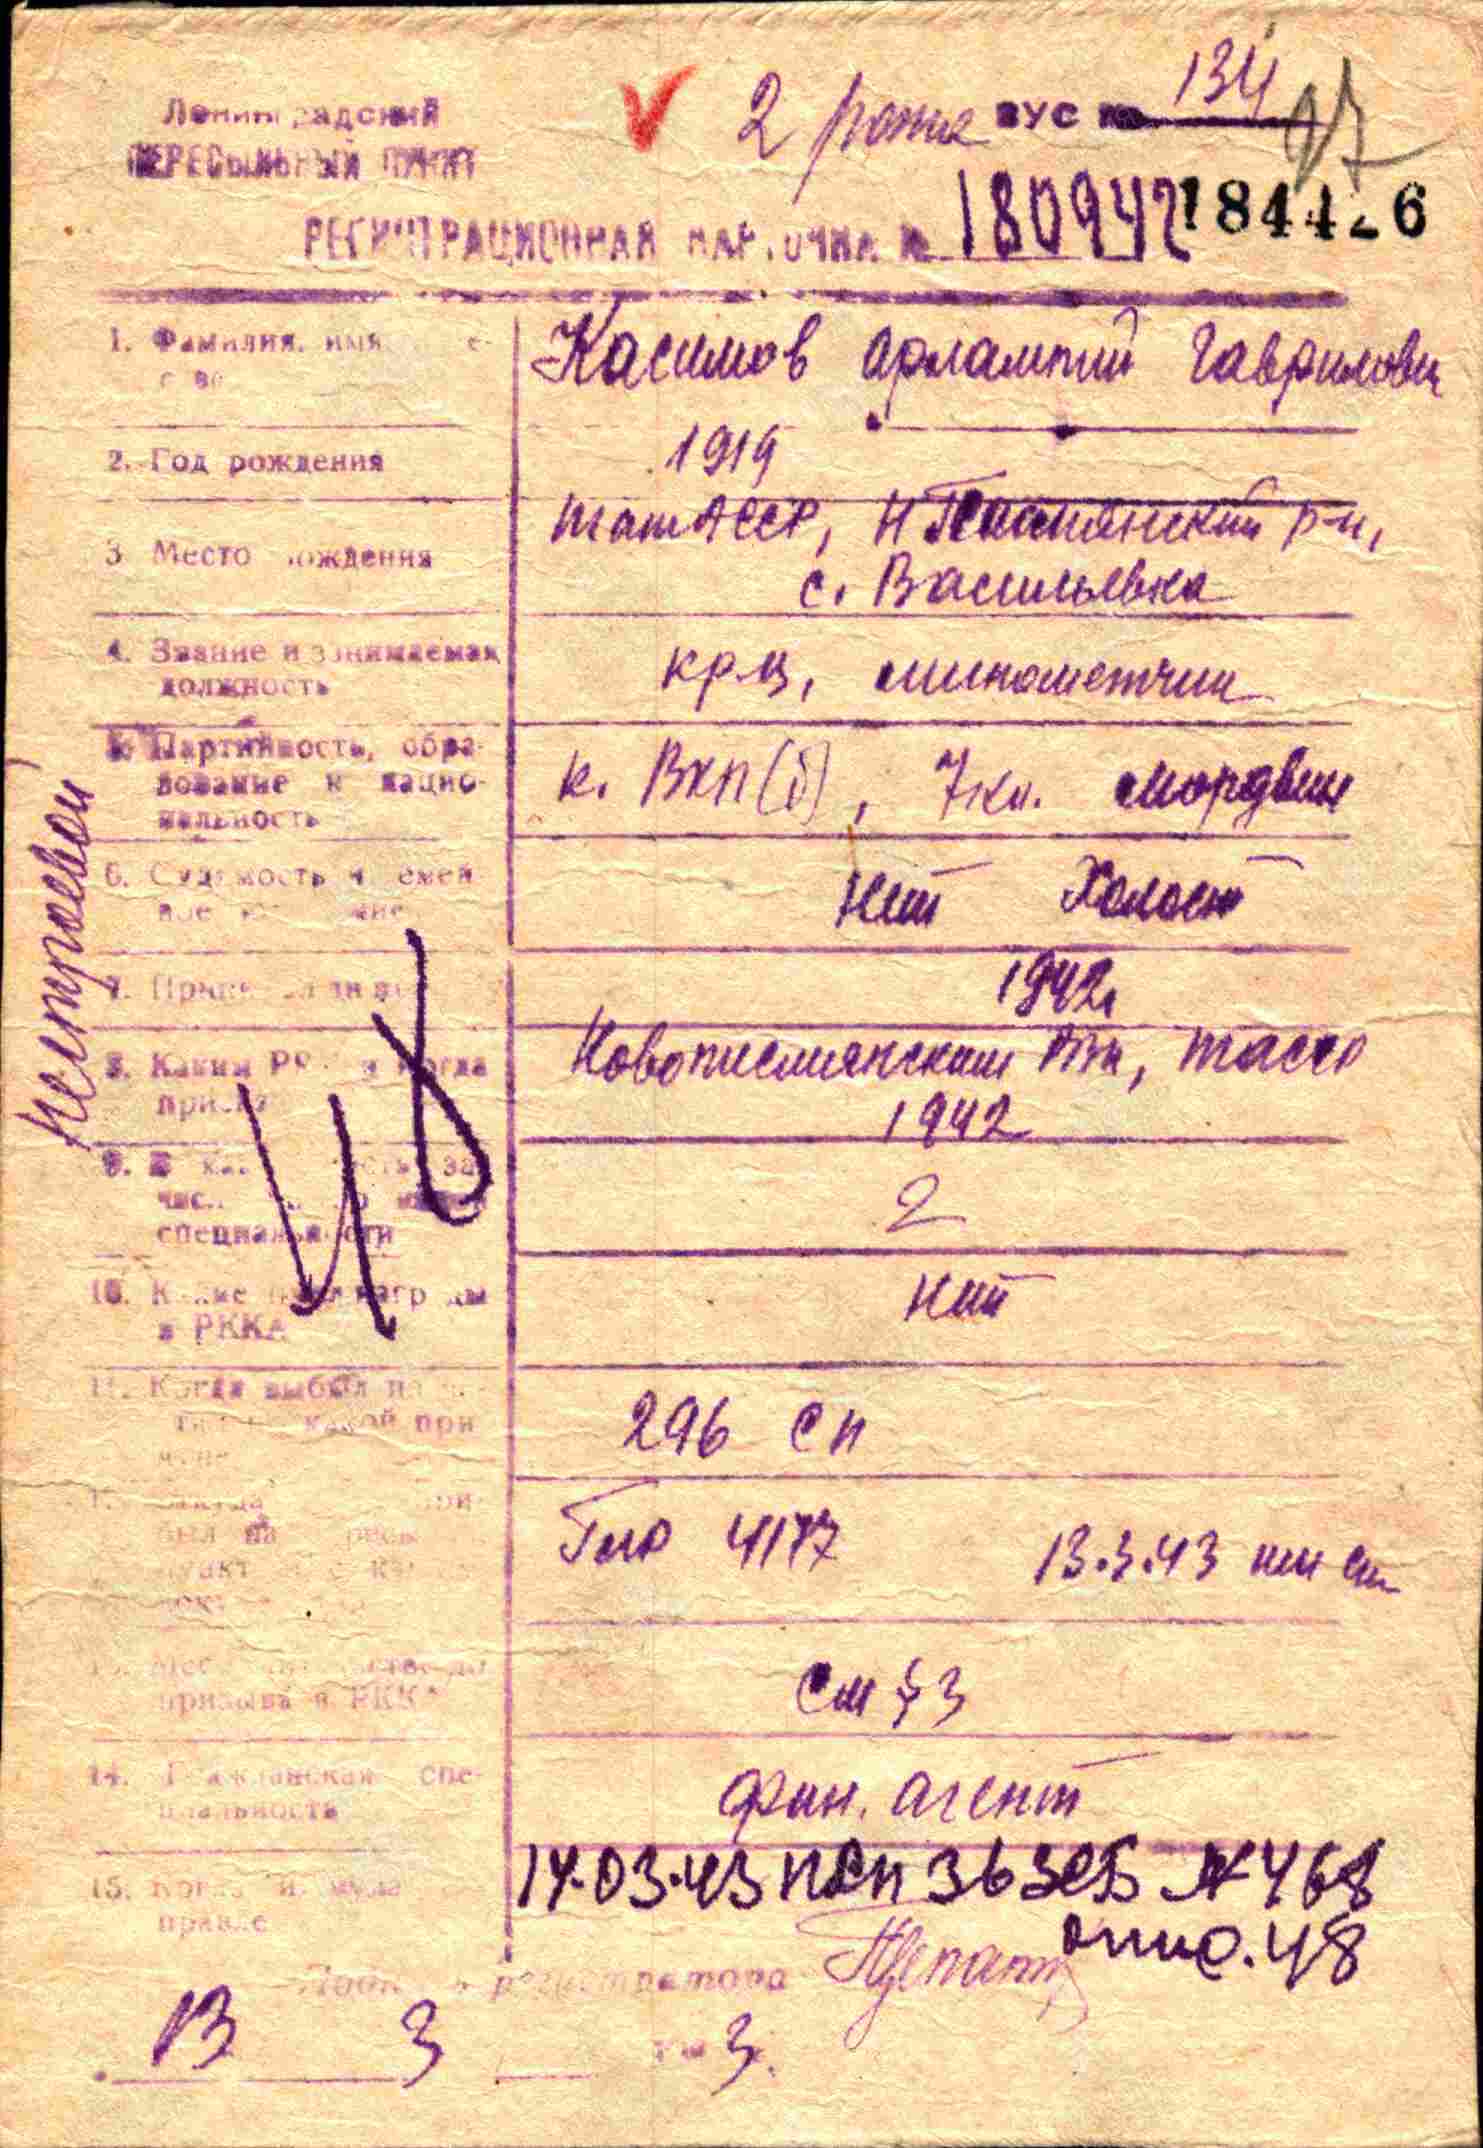 Ленинградский
ПЕРЕСЫЛЬНЫЙ ПУНКТ
2 рота ВУС № 134
РЕГИСТРАЦИОННАЯ КАРТОЧКА № 180942 184426
1. Фамилия, имя
Касимов Арлампий Гаврилович
2. Год рождения 1919
3. Место рождения
ТатАССР, Н Письмянский р-н,
с. Васильевка
4. Звание и занимаемая
должность
кр-ц, минометчик
5. Партийность, обра-
зование и нацио-
нальность
к. ВКП(б), 7 кл. мордвин
6. Судимость и семей
нет Холост
7. 1942
8. Каким РВК и когда
призван
Новописмянским РВК, ТАССР
1942
9. В
специальности
2
10. Какие имел награды
в РККА
нет
11. Когда выбыл из
какой при
296 СП
был на
Гпр 4177 13.3.43
призыва в РККА
см § 3
14. Гражданская спе-
циальность
фин. агент
15. Когда и куда
14.03.43 363 № 468
48
регистратора
13 3 3.
нестроевой